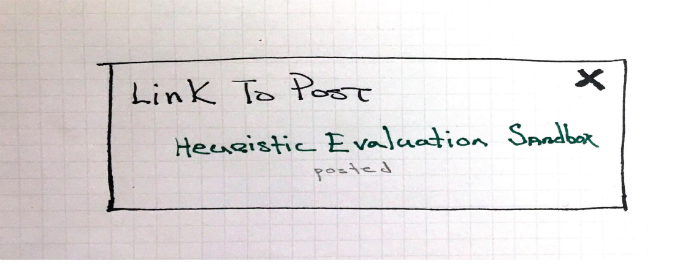 Link To Post
X
Heuristic Evaluation Sandbox
posted